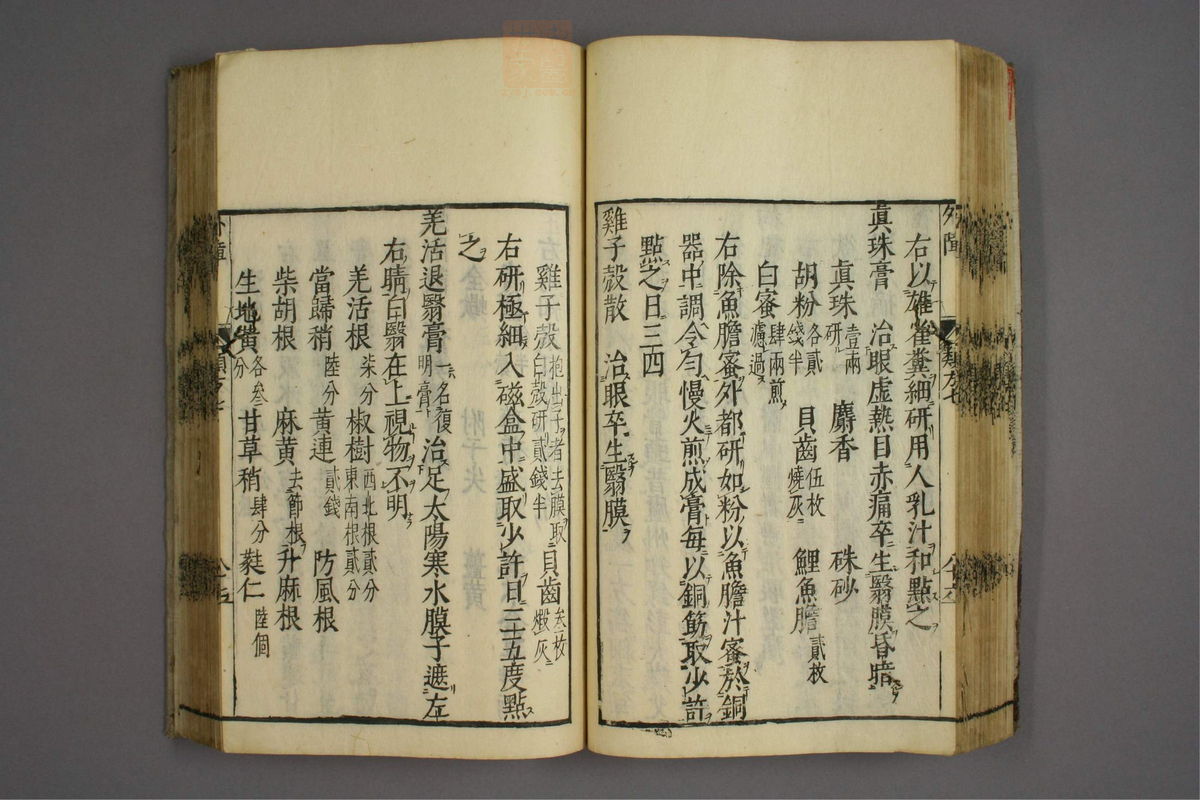 右以雄雀糞細研用人乳汁和點之
真珠膏 治眼虛熱目赤痛卒生翳膜昏暗
真珠壹兩研 麝香 硃砂
胡粉各貳錢半 貝齒伍枚燒灰 鯉魚膽貳枚
白蜜肆兩煎濾過
右除魚膽蜜外都研如粉以魚膽汁蜜於銅
器中調令勻慢火煎成膏每以銅筯取少許
點之日三四
雞子殼散 治眼卒生翳膜
雞子殼抱出子者去膜取白殼研貳錢半 貝齒叁枚煅灰
右研極細入磁盒中盛取少許日三五度點
之
羌活退翳膏一名復明膏 治足太陽寒水膜子遮左
右睛白翳在上視物不明
羌活根柒分 椒樹西北根貳分東南根貳分
當歸稍陸分 黃連貳錢 防風根
柴胡根 麻黃去節根 升麻根
生地黃各叁分 甘草稍肆分 蕤仁陸個